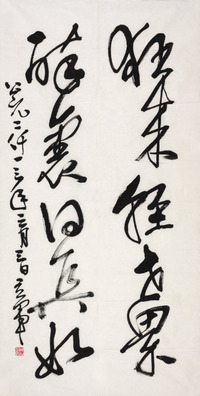 狂来轻世界
醉里得真如
公元二仟一三年